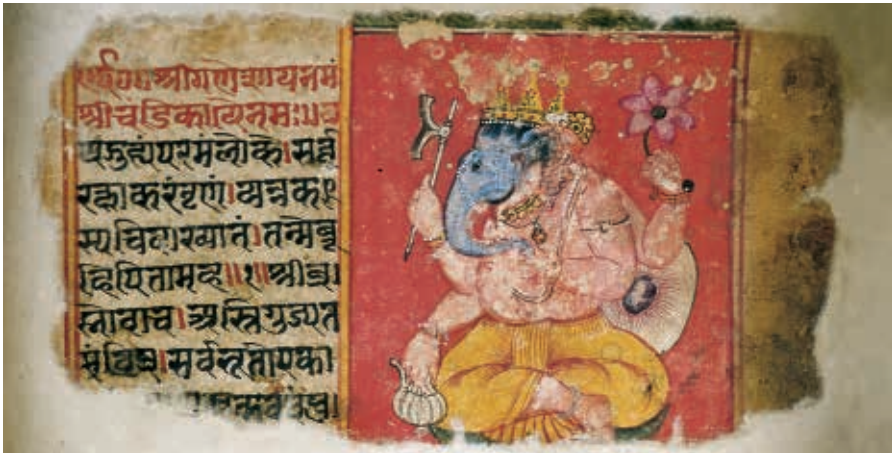 श्रीगणेशायनमः
श्रीचंडिकायैनमः॥
गुह्यंपरमंलोके।सर्व्व
रक्षाकरंनृणां।यन्नक
स्यचिदाख्यातं।तन्मेब्रू
हिपितामह॥१॥श्रीब्र
ह्मोवाच।अस्तिगुह्यत
मंविप्र।सर्वभूतोपका